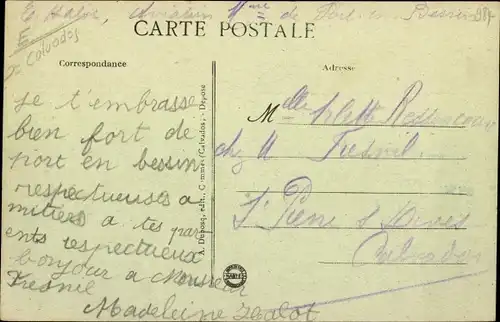 E Halot, Aviation M^me de Port en Bessin
E
Calvados
CARTE POSTALE
Correspondance
Adresse
je t'embrasse
bien fort de
port en bessin
respectueuses a
mitiers a tes par
ents respectueux
bonjour a Monsieur
Fresnil
Madeleine Halot
A. Dubosq, édit., Commes (Calvados). - Déposé
M^elle Arlette
chez M Fresnil
St Pierre s Dives
Calvados